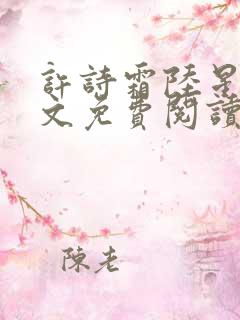 許詩霜陸星
文免費閱讀
陳老